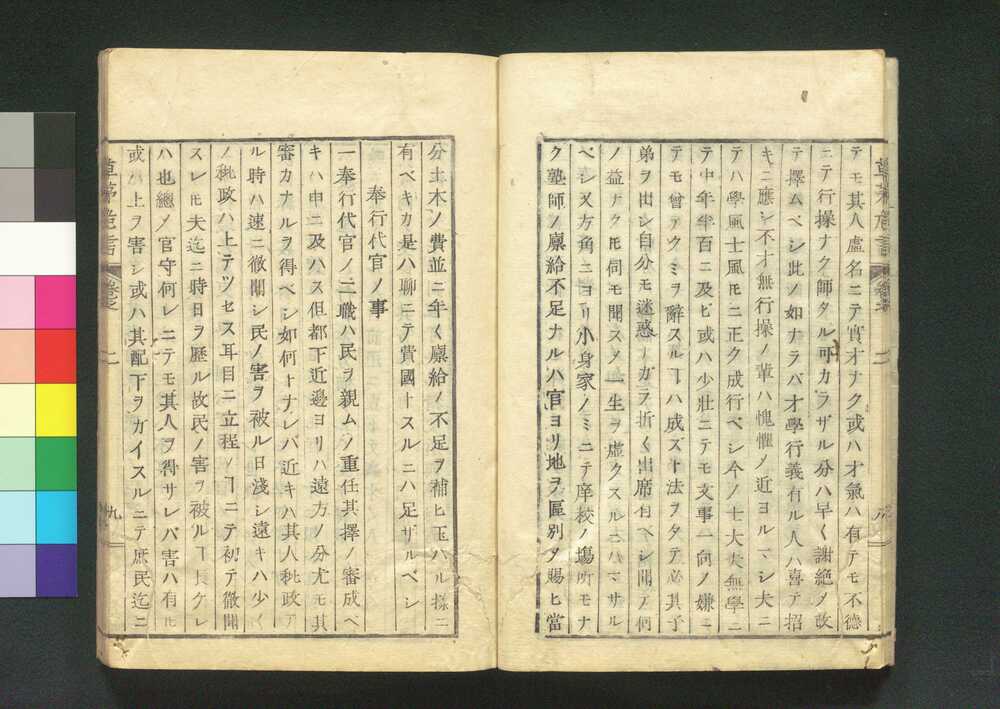 テモ其人虚名ニテ實才ナク或ハ才氣ハ有テモ不德
ニテ行操ナク師タル可カラザル分ハ早く謝絶メ改
テ擇ムベシ此ノ如ナラバ才學行義有ル人ハ喜テ招
キニ應シ不才無行操ノ輩ハ愧懼ノ近ヨルマシ夫ニ
テハ學風士風モニ正ク成行ベシ今ノ士大夫無學ニ
テ中年半百ニ及ビ或ハ少壯ニテモ文事一向ノ嫌ニ
テモ曾テクミヲ辭スルヿハ成ズト法ヲタテ必其子
弟ヲ出シ自分モ迷惑ナガラ折く出席有ベシ聞テ何
ノ益ナクモ伺モ聞スメ一生ヲ虚クスルニハマサル
ベシ又方角ニヨリ小身家ノミニテ庠校ノ場所モナ
ク塾師ノ廩給不足ナルハ官ヨリ地ヲ區別メ賜ヒ當
分土木ノ費並ニ年く廩給ノ不足ヲ補ヒ玉ハル様ニ
有ベキカ是ハ聊ニテ費國トスルニハ足ザルベシ
奉行代官ノ事
一奉行代官ノ二職ハ民ヲ親ムノ重任其擇ノ審成ベ
キハ申ニ及ハス但都下近邊ヨリハ遠方ノ分尤モ其
審カナルヲ得ベシ如何トナレバ近キハ其人秕政ア
ル時ハ速ニ徹聞シ民ノ害ヲ被ル日淺シ遠キハ少く
ノ秕政ハ上テツセス耳目ニ立程ノヿニテ初テ徹聞
スレモ夫迄ニ時日ヲ歴ル故民ノ害ヲ被ルヿ長ケレ
ハ也總ノ官守何レニテモ其人ヲ得サレバ害ハ有ル
或ハ上ヲ害シ或ハ其配下ヲガイスルニテ庶民迄ニ
草茅危言
卷之
二
九